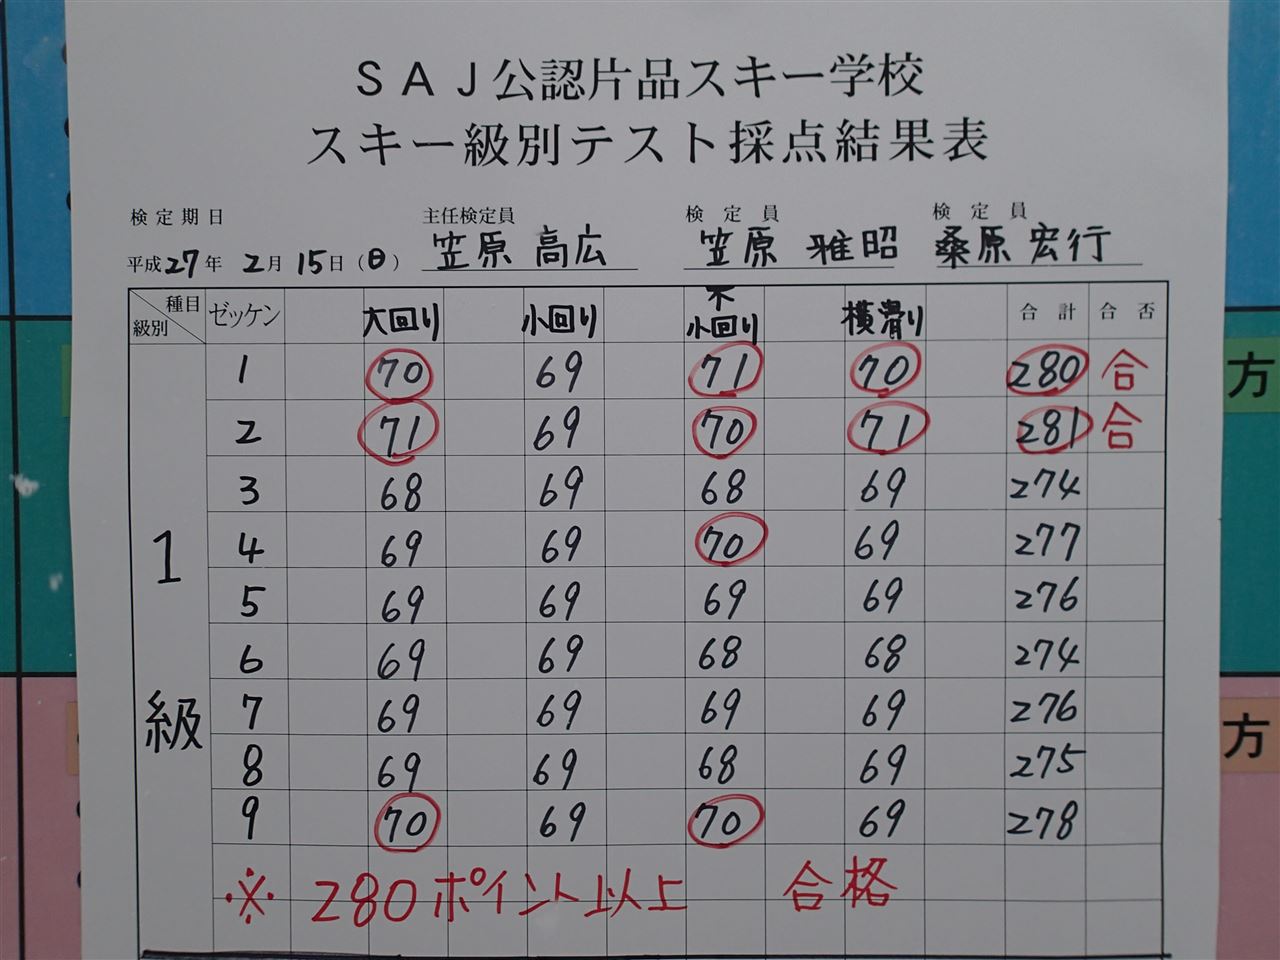 SAJ公認片品スキー学校
スキー級別テスト採点結果表
検定期日 主任検定員 検定員 検定員
平成27年 2月 15日(日) 笠原 高広 笠原 雅昭 桑原 宏行
種目 級別 ゼッケン 大回り 小回り 不小回り 横滑り 合計 合否
1 70 69 71 70 280 合
2 71 69 70 71 281 合
3 68 69 68 69 274
4 69 69 70 69 277
5 69 69 69 69 276
6 69 69 68 68 274
7 69 69 69 69 276
8 69 69 68 69 275
9 70 69 70 69 278
1級
※ 280ポイント以上 合格
方
方